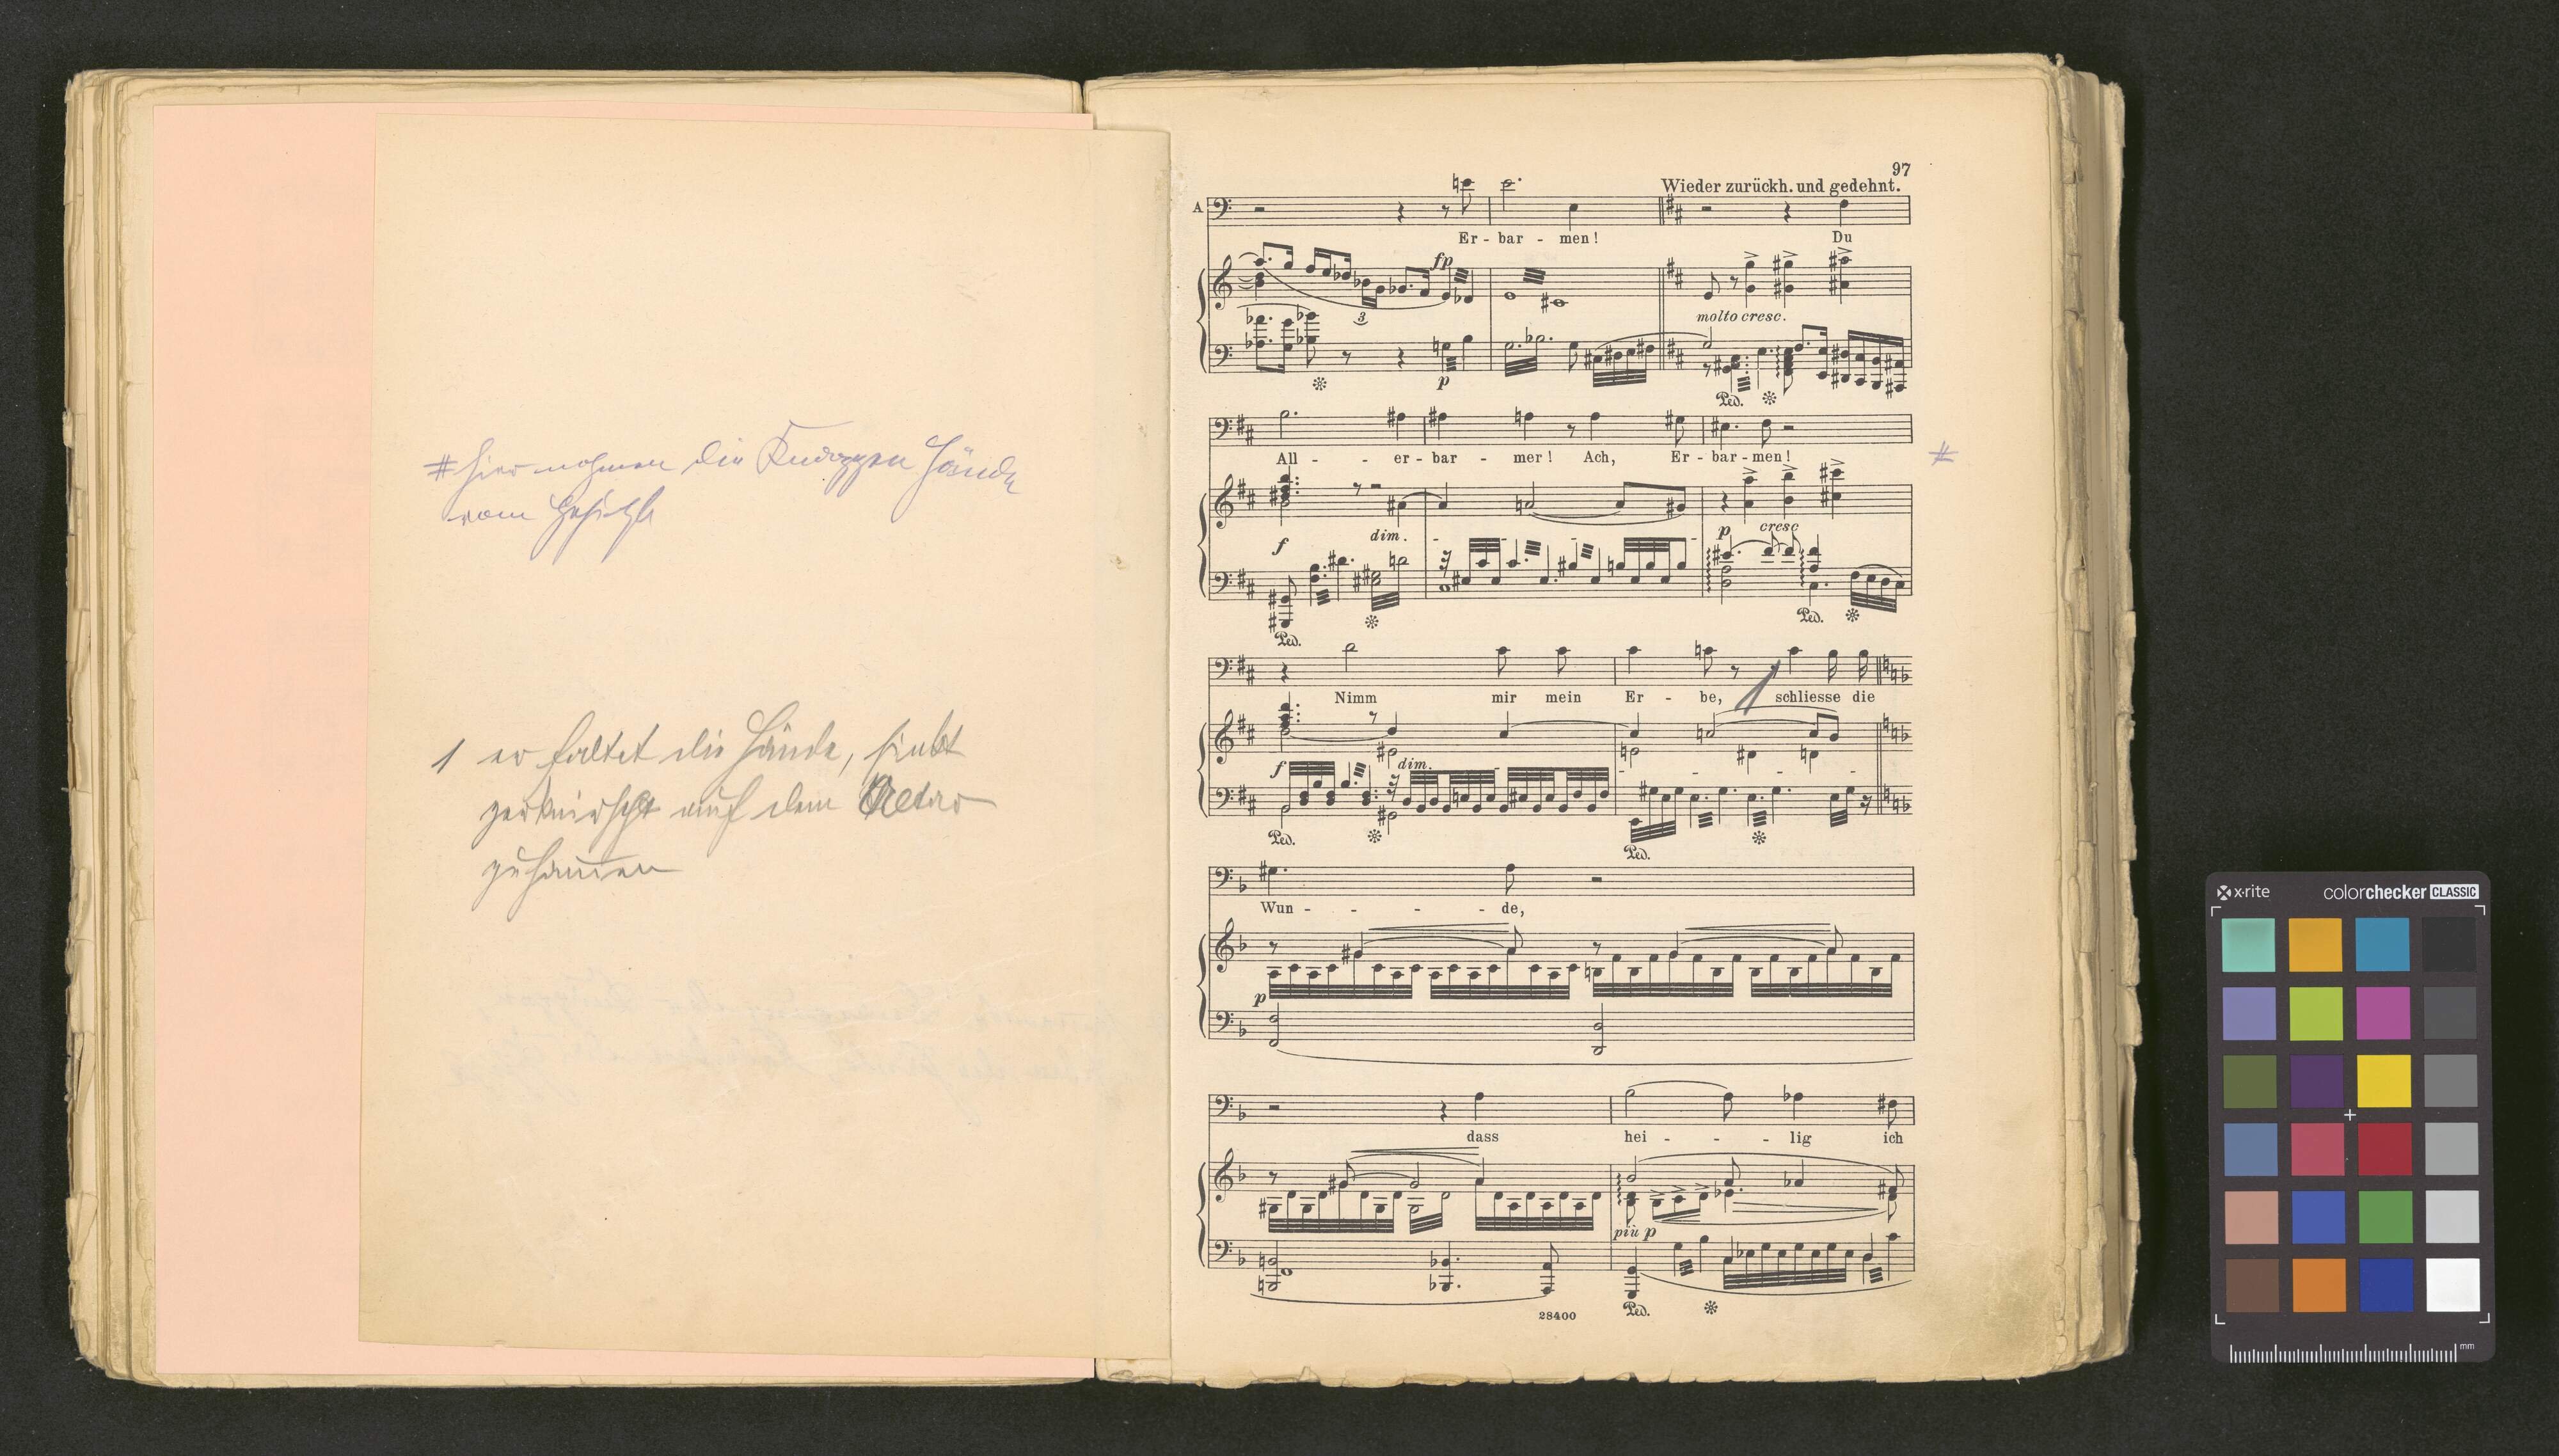 # hier nehmen die Knappen Hände
vom Gesicht
1 er faltet die Hände, sinkt
zerknirscht auf dem Altar
zusammen
97
Wieder zurückh. und gedehnt.
A
Er - bar - men! Du
fp
3
molto cresc.
p
Ped.
All - - er - bar - mer! Ach, Er - bar - men!
#
f dim. p cresc
Ped. Ped.
Nimm mir mein Er - be, schliesse die
f dim.
Ped. Ped.
Wun - - - - de,
p
dass hei - - - lig ich
più p
Ped.
28400
x-rite colorchecker CLASSIC
mm